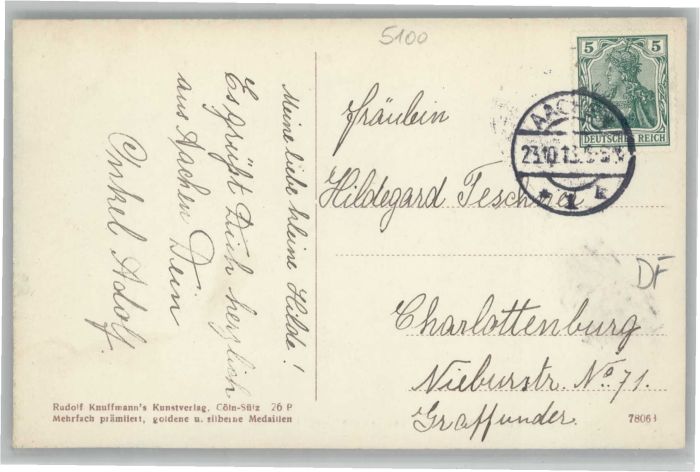 5100
5 5
DEUTSCHES REICH
AACHEN
23.10.13.
* 1 k
Meine liebe kleine Hilde!
Es grüßt Dich herzlich
aus Aachen Dein
Onkel Adolf.
Fräulein
Hildegard
DF
Charlottenburg
Nieburstr. No 71.
Graffunder.
Rudolf Knuffmann's Kunstverlag, Cöln-Sülz 26 P
Mehrfach prämiiert, goldene u. silberne Medaillen